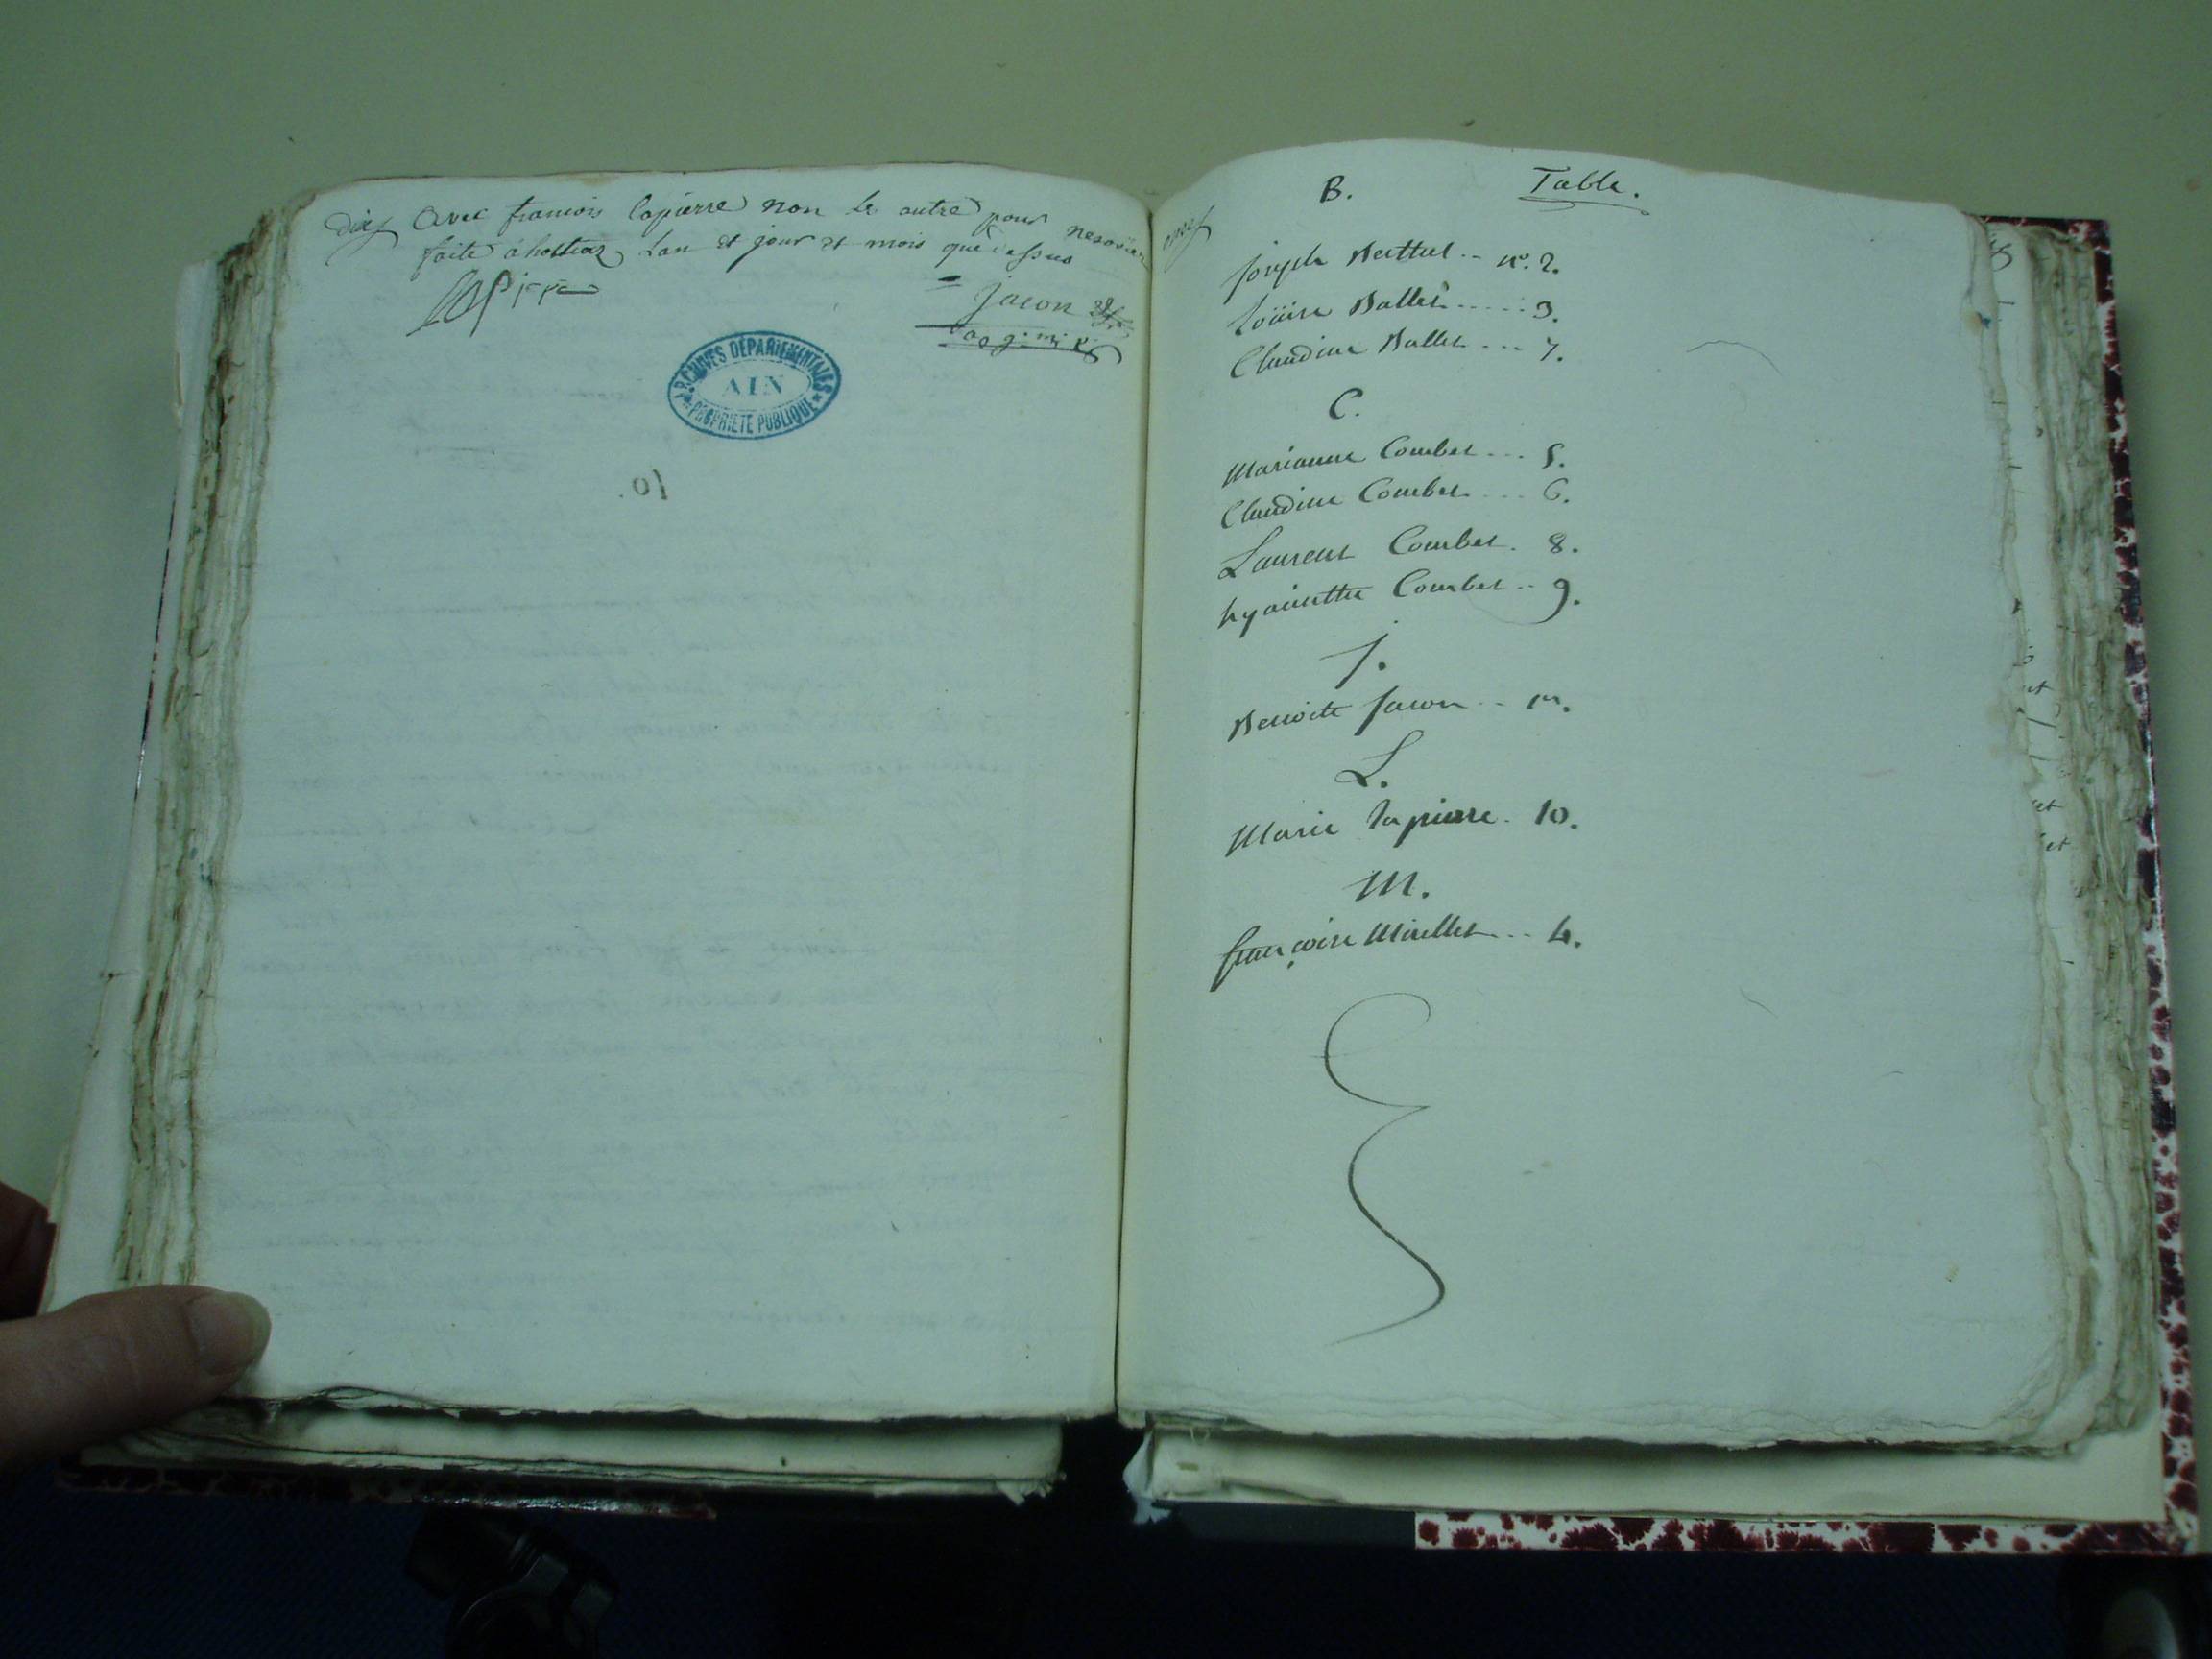 dix
avec francois lapierre non le autre pour
faite a hostiaz Lan et jour et mois que dessus
Lapierre
Jacon
ARCHIVES DÉPARTEMENTALES
AIN
PROPRIÉTÉ PUBLIQUE
10.
onze
B. Table.
Joseph Berthet .. no. 2.
Loüise Ballet ..... 3.
Claudine Ballet ... 7.
C.
Marianne Combet ... 5.
Claudine Combet ... 6.
Laurent Combet. 8.
hyacinthe Combet .. 9.
J.
Benoite Jacon .. 1er.
L.
Marie Lapierre . 10.
M.
françoise Miellet ... 4.